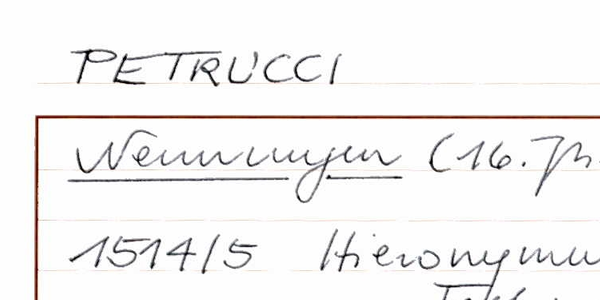 PETRUCCI
Nennungen (16. Jh.
1514/5 Hieronymu